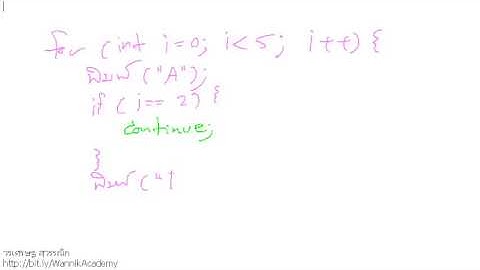 for (int i=0; i<5; i++) {
พิมพ์("A");
if (i==2) {
continue;
}
พิมพ์("
วรเศรษฐ สุวรรณิก
http://bit.ly/WannikAcademy